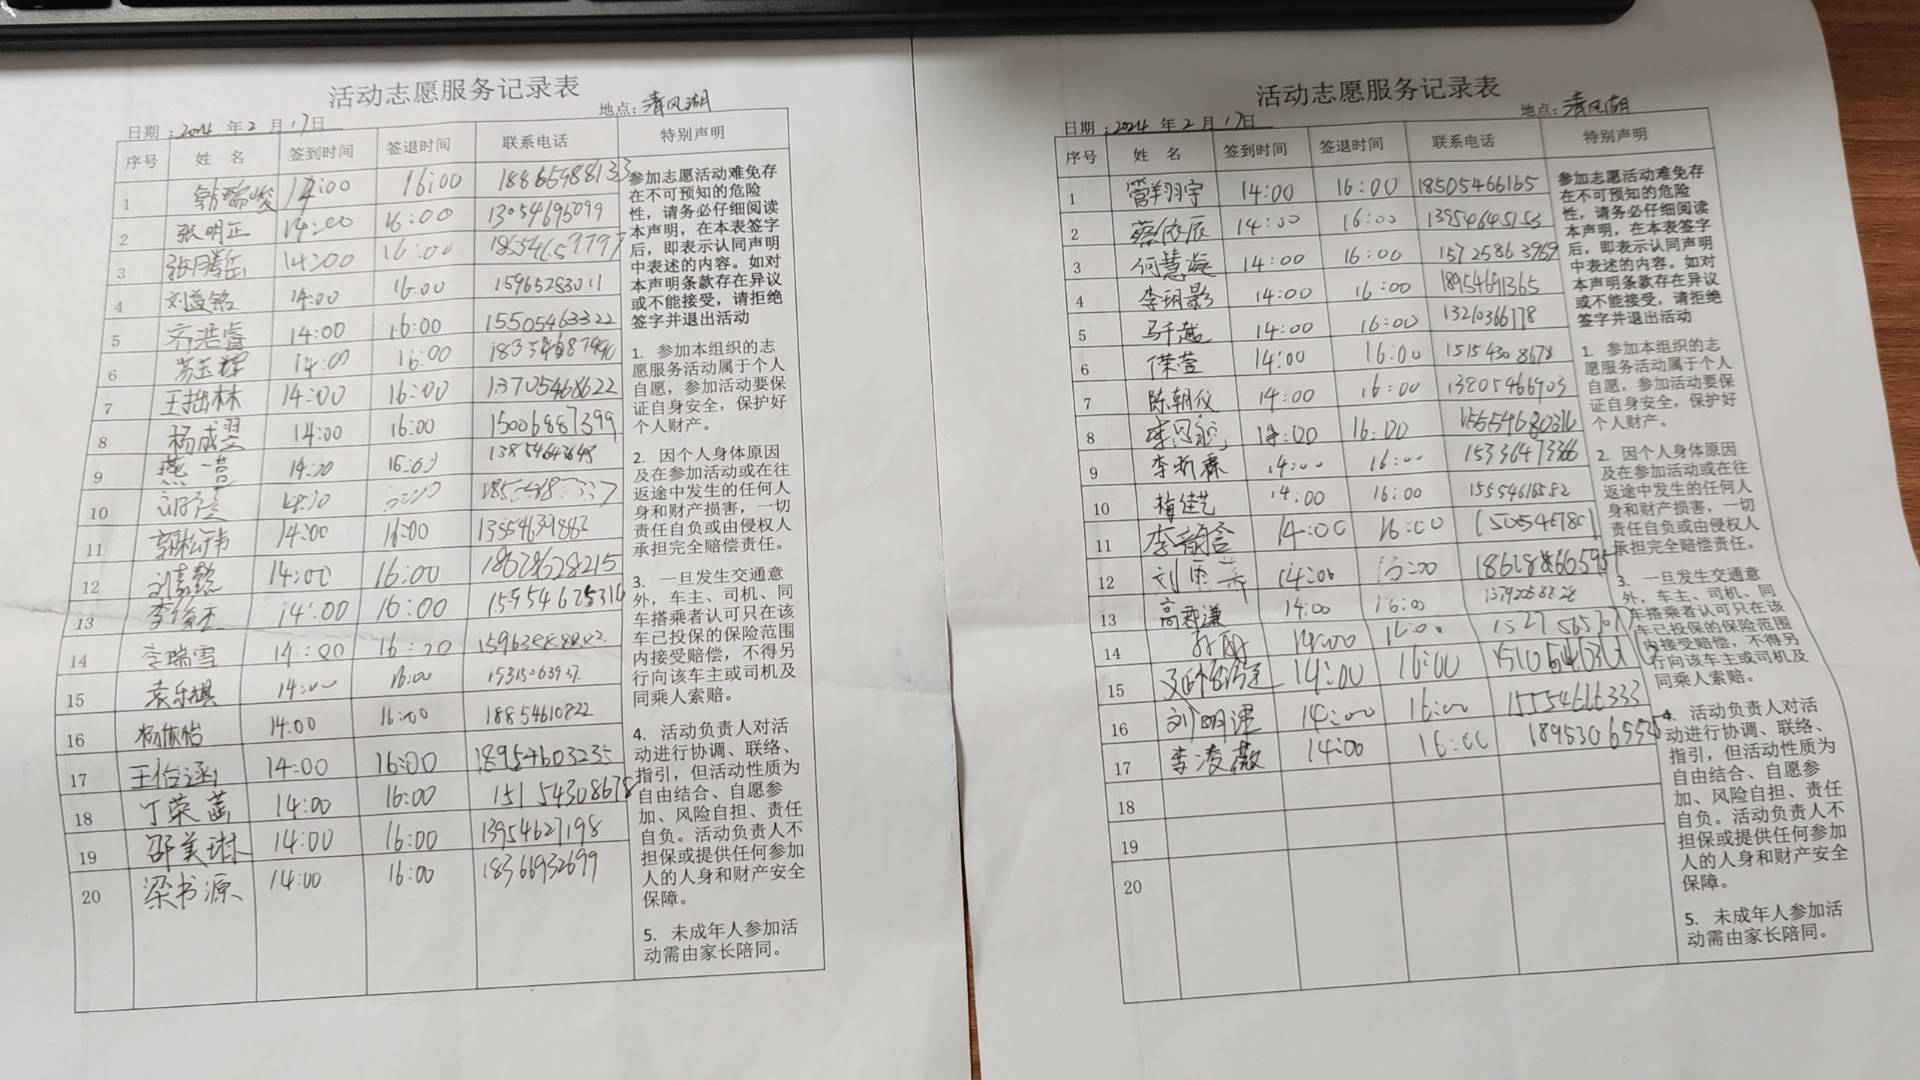 活动志愿服务记录表
日期：2024 年 2 月 17日 地点：清风湖
序号 姓 名 签到时间 签退时间 联系电话 特别声明
1 14:00 16:00 18865988133
2 张明正 14:00 16:00 13054696099
3 张腾岳 14:00 16:00
4 刘益铭 14:00 16:00 15965283011
5 齐浩睿 14:00 16:00 15505463322
6 14:00 16:00 18354687990
7 王拙林 14:00 16:00 13705468622
8 杨成翌 14:00 16:00 15006887399
9 燕 14:00 16:00 13854643648
10
11 14:00 16:00 13554639882
12 刘嘉懿 14:00 16:00 18678628215
13 李俊杰 14:00 16:00 15954675316
14 李瑞雪 14:00 16:00
15 袁乐祺 14:00 16:00
16 杨依怡 14:00 16:00 18854610822
17 王怡涵 14:00 16:00 18954603235
18 丁荣菡 14:00 16:00 15154308678
19 邵美琳 14:00 16:00 13954627198
20 梁书源 14:00 16:00 18366932699
参加志愿活动难免存
在不可预知的危险
性，请务必仔细阅读
本声明，在本表签字
后，即表示认同声明
中表述的内容。如对
本声明条款存在异议
或不能接受，请拒绝
签字并退出活动
1. 参加本组织的志
愿服务活动属于个人
自愿，参加活动要保
证自身安全，保护好
个人财产。
2. 因个人身体原因
及在参加活动或在往
返途中发生的任何人
身和财产损害，一切
责任自负或由侵权人
承担完全赔偿责任。
3. 一旦发生交通意
外，车主、司机、同
车搭乘者认可只在该
车已投保的保险范围
内接受赔偿，不得另
行向该车主或司机及
同乘人索赔。
4. 活动负责人对活
动进行协调、联络、
指引，但活动性质为
自由结合、自愿参
加、风险自担、责任
自负。活动负责人不
担保或提供任何参加
人的人身和财产安全
保障。
5. 未成年人参加活
动需由家长陪同。
活动志愿服务记录表
日期：2024 年 2 月 17日 地点：清风湖
序号 姓 名 签到时间 签退时间 联系电话 特别声明
1 管翔宇 14:00 16:00 18505466165
2 蔡依辰 14:00 16:00 13954645153
3 何慧凝 14:00 16:00 15725863969
4 李玥影 14:00 16:00 18954691365
5 马千越 14:00 16:00 13210366178
6 荣萱 14:00 16:00 15154308678
7 陈朝仪 14:00 16:00 13205466903
8 14:00 16:00 15554680316
9 李昕霖 14:00 16:00 15336473366
10 梅佳艺 14:00 16:00 15554616582
11 14:00 16:00 1505467801
12 14:00
13 高 谦 14:00 16:00
14 14:00 16:00
15 14:00 16:00
16 刘明津 14:00 16:00 15554616333
17 李凌薇 14:00 16:00
18
19
20
参加志愿活动难免存
在不可预知的危险
性，请务必仔细阅读
本声明，在本表签字
后，即表示认同声明
中表述的内容。如对
本声明条款存在异议
或不能接受，请拒绝
签字并退出活动
1. 参加本组织的志
愿服务活动属于个人
自愿，参加活动要保
证自身安全，保护好
个人财产。
2. 因个人身体原因
及在参加活动或在往
返途中发生的任何人
身和财产损害，一切
责任自负或由侵权人
承担完全赔偿责任。
3. 一旦发生交通意
外，车主、司机、同
车搭乘者认可只在该
车已投保的保险范围
内接受赔偿，不得另
行向该车主或司机及
同乘人索赔。
4. 活动负责人对活
动进行协调、联络、
指引，但活动性质为
自由结合、自愿参
加、风险自担、责任
自负。活动负责人不
担保或提供任何参加
人的人身和财产安全
保障。
5. 未成年人参加活
动需由家长陪同。